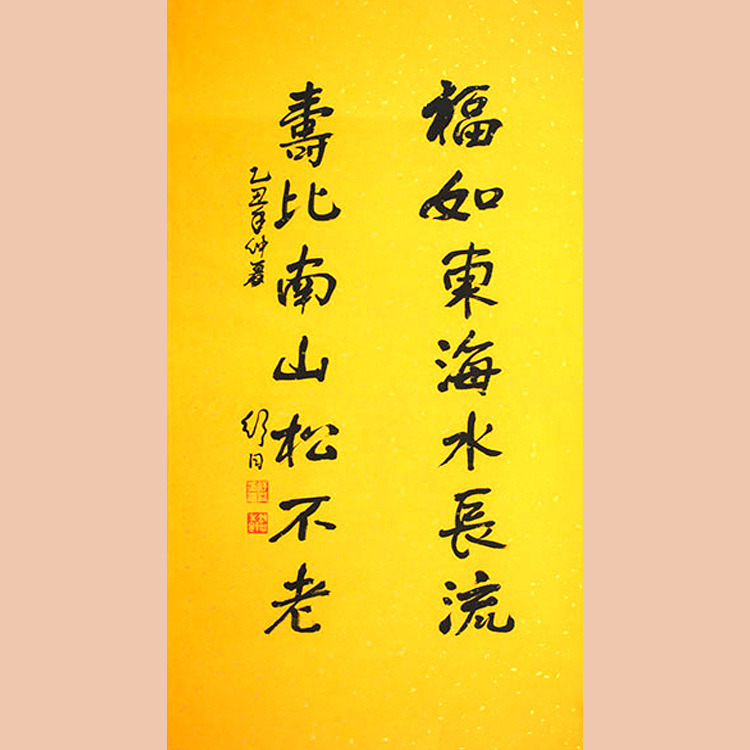 福如東海水長流
壽比南山松不老
乙丑年仲夏
舒同